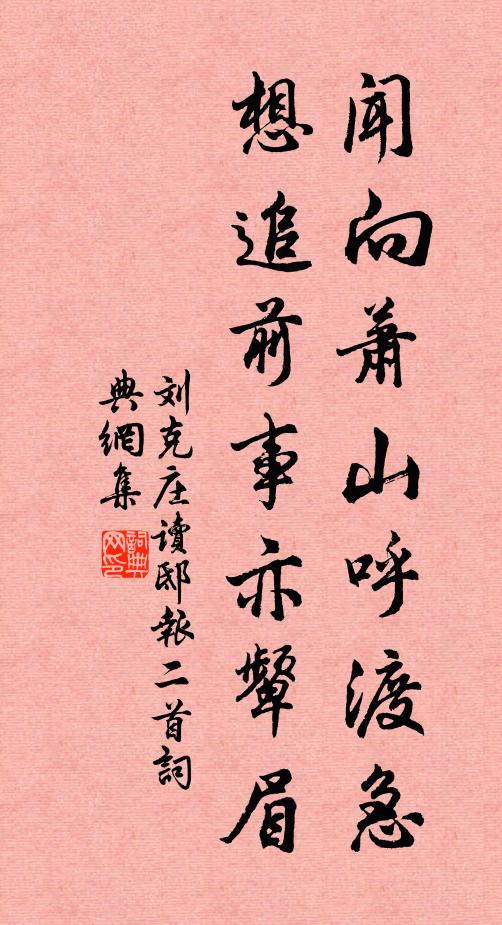 闻向萧山呼渡急
想追前事亦颦眉
刘克庄读邸报二首词
典網集
詞典網印